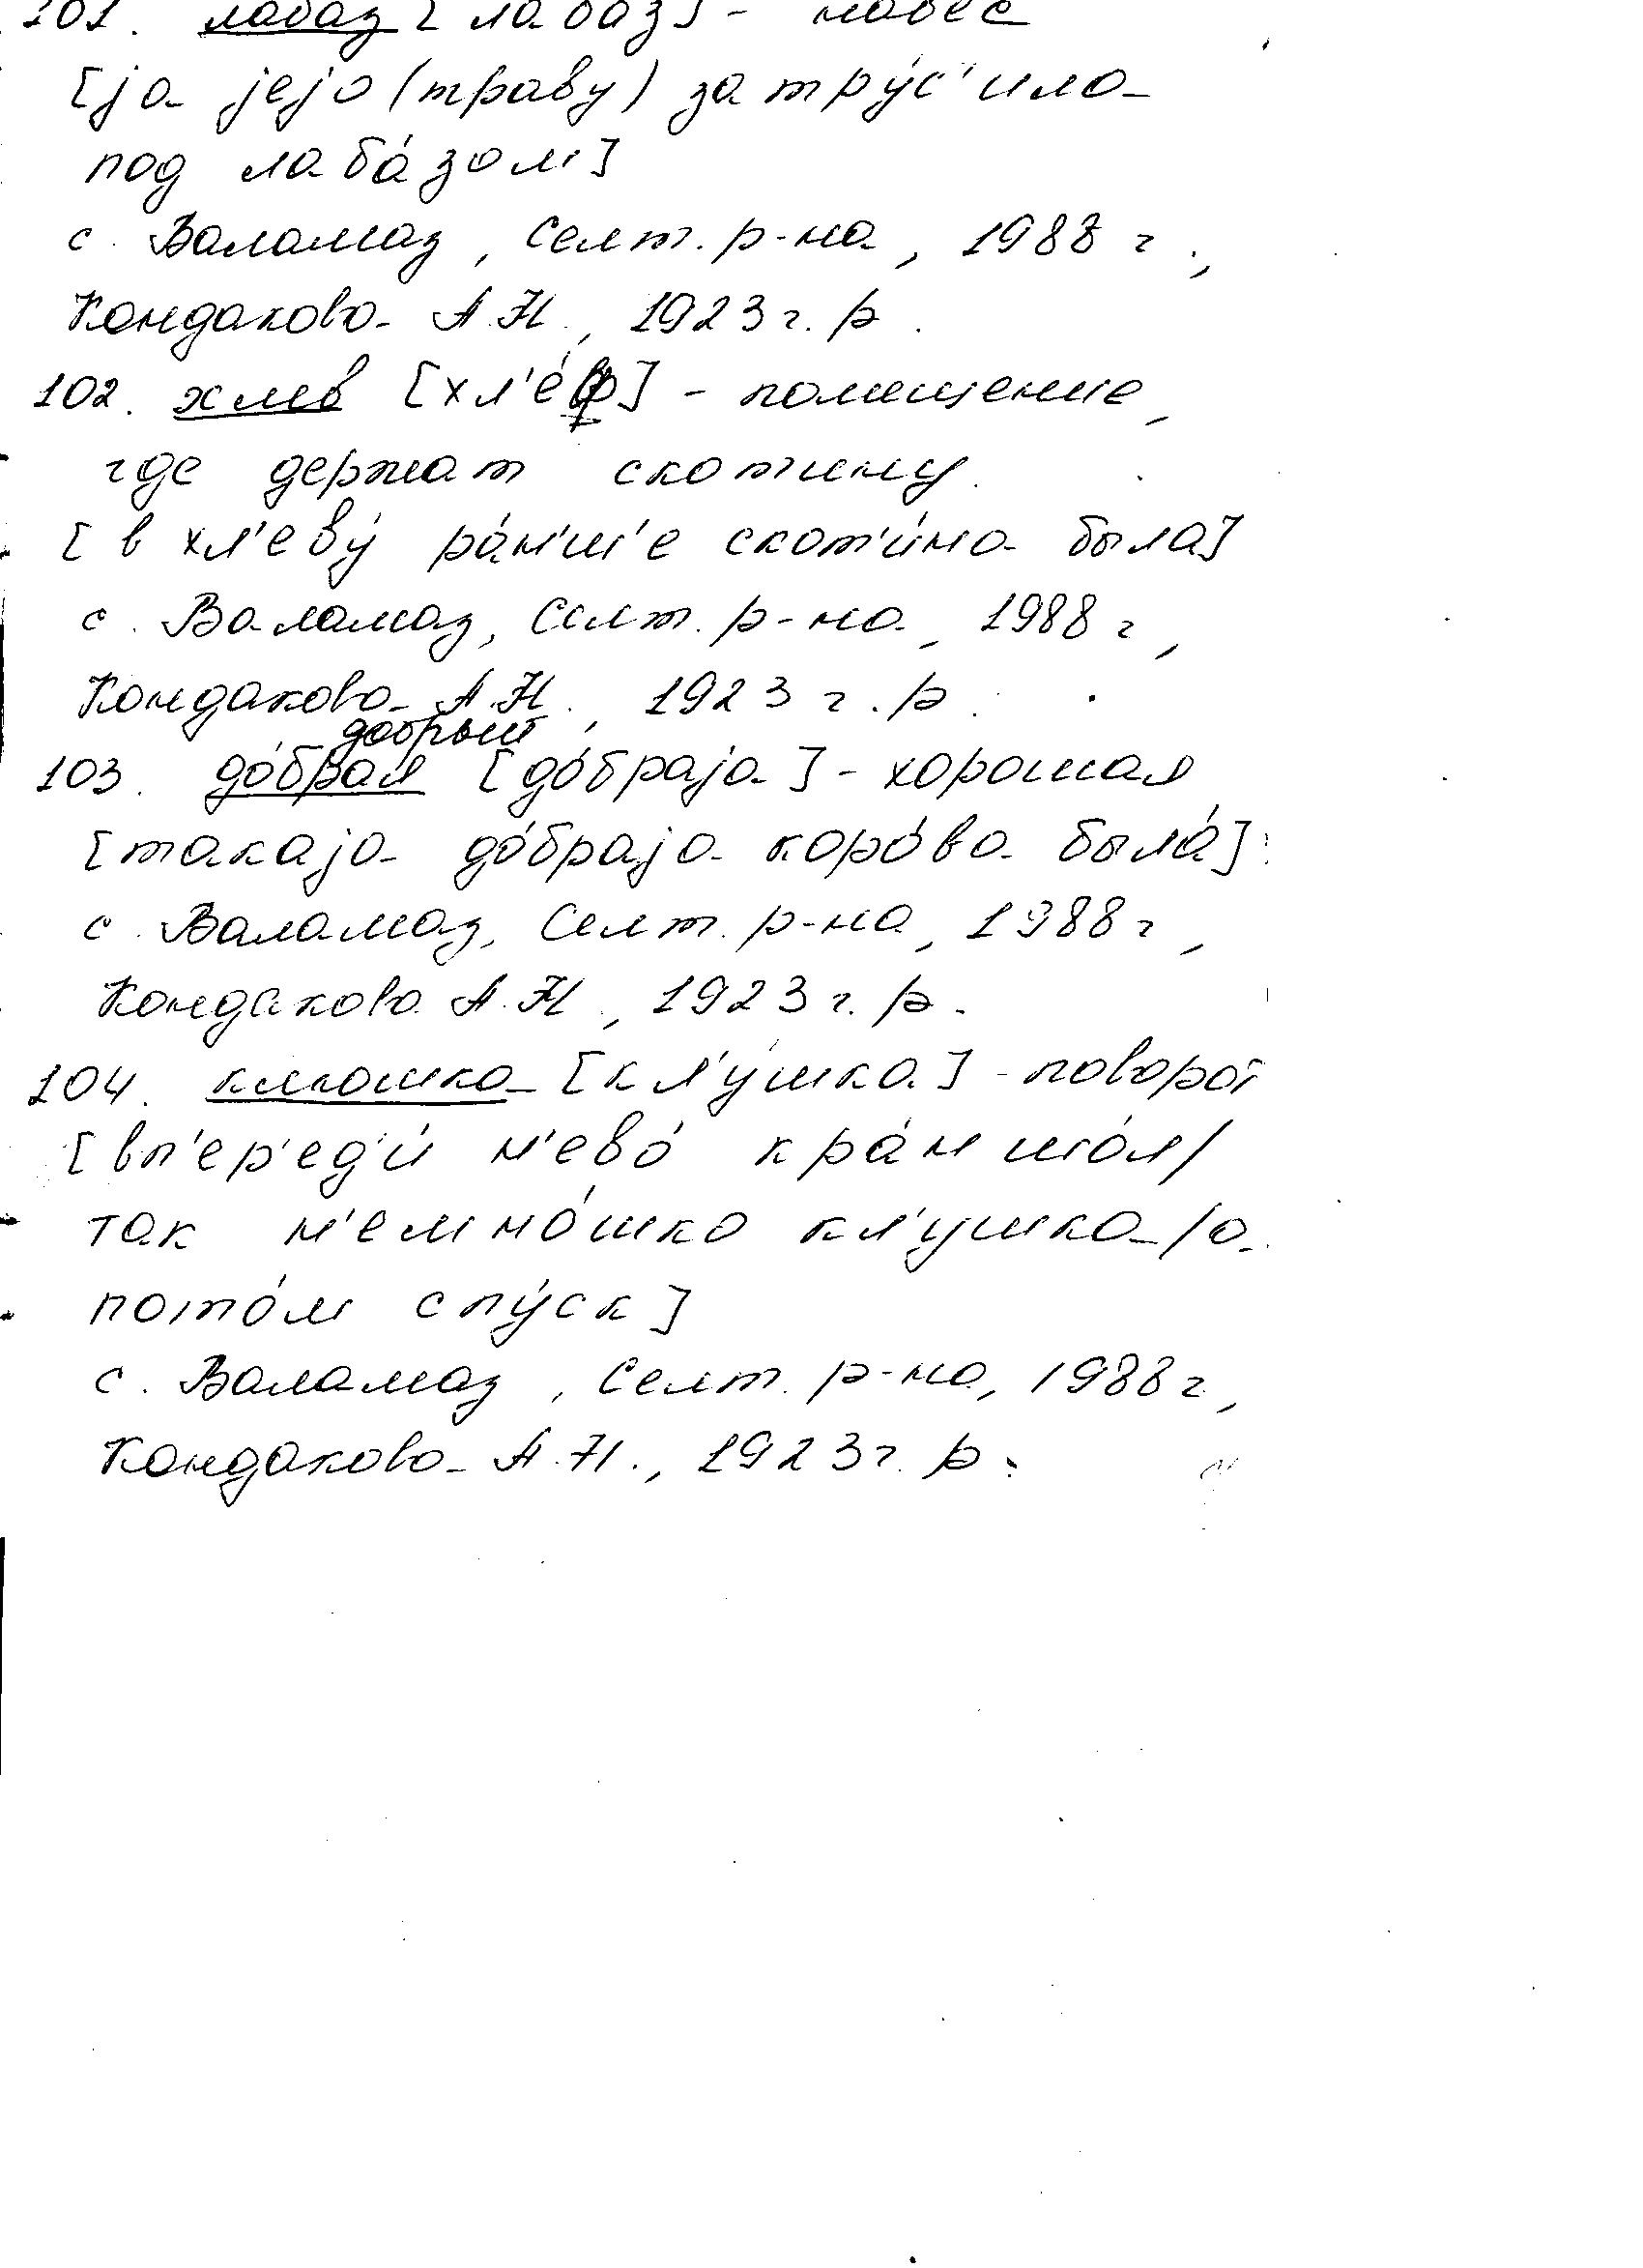 101. лабаз [лабаз] - навес
[jа jejо (траву) затру́с'ила
под лаба́зом]
с. Валамаз, Селт. р-на, 1988 г.,
Кондакова А.Н., 1923 г.р.
102. хлев [хл'е́ф] - помещение,
где держат скотину.
[в хл'еву́ ра́н'ш'е скот'и́на была]
с. Валамаз, Селт. р-на, 1988 г,
Кондакова А.Н., 1923 г.р.
добрый
103. до́брая [до́браjа] - хорошая
[такаjа до́браjа коро́ва была́]
с. Валамаз, Селт. р-на, 1988 г,
Кондакова А.Н., 1923 г.р.
104. клюшка [кл'у́шка] - поворот
[вп'ер'ед'и́ н'ево́ кра́н шо́л/
так н'емно́шко кл'ушка/а
пото́м спу́ск]
с. Валамаз, Селт. р-на, 1988 г,
Кондакова А.Н., 1923 г.р.